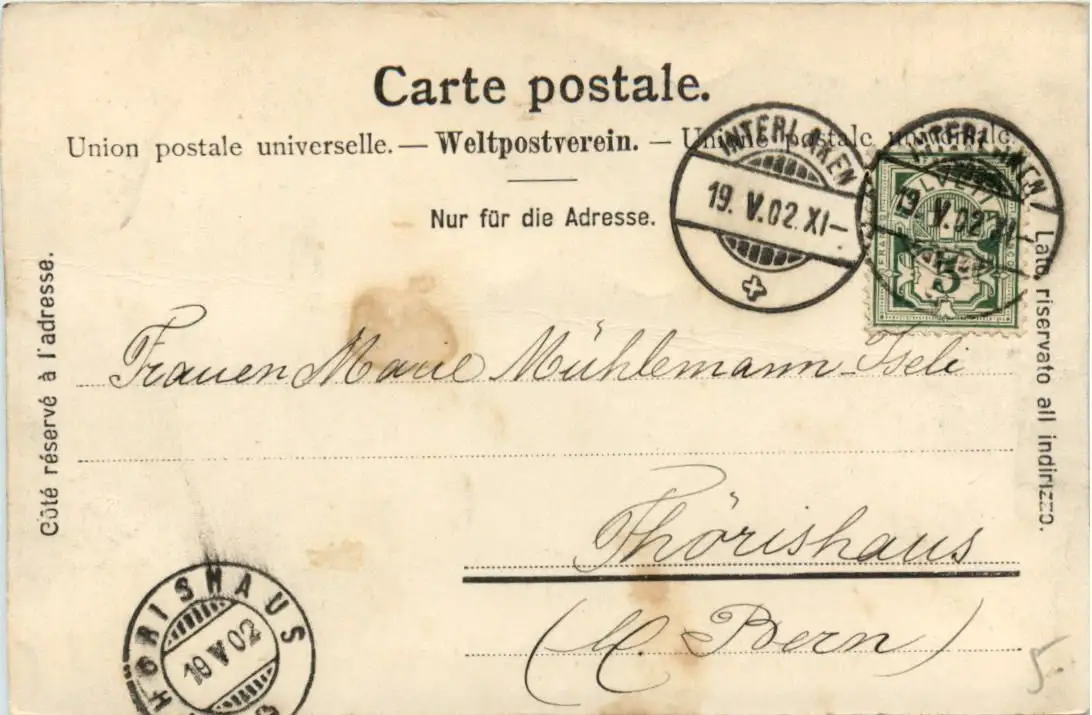 Carte postale.
Union postale universelle. — Weltpostverein. — Unione postale universale.
Nur für die Adresse.
INTERLAKEN
19. V. 02. XI—
INTERLAKEN
19. V. 02. XI—
HELVETIA
FRANCO
5
Côté réservé à l'adresse.
Lato riservato all indirizzo.
Frauen Marie Mühlemann-Iseli
Thörishaus
(Ct. Bern)
THÖRISHAUS
19 V 02
5.-